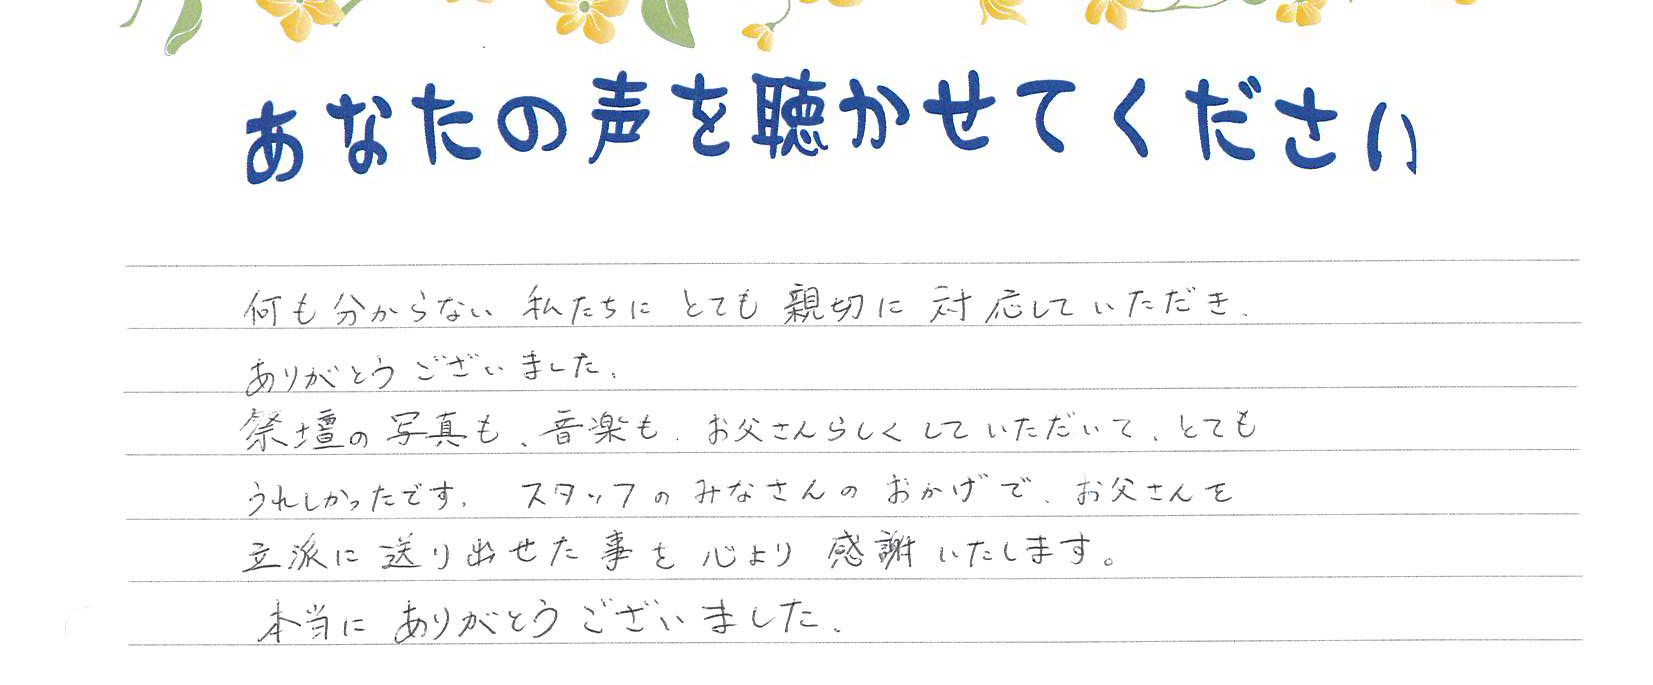 あなたの声を聴かせてください
何も分からない 私たちに とても 親切に 対応していただき、
ありがとうございました。
祭壇の写真も、音楽も、お父さんらしくしていただいて、とても
うれしかったです。 スタッフのみなさんのおかげで、お父さんを
立派に送り出せた事を心より感謝いたします。
本当にありがとうございました。